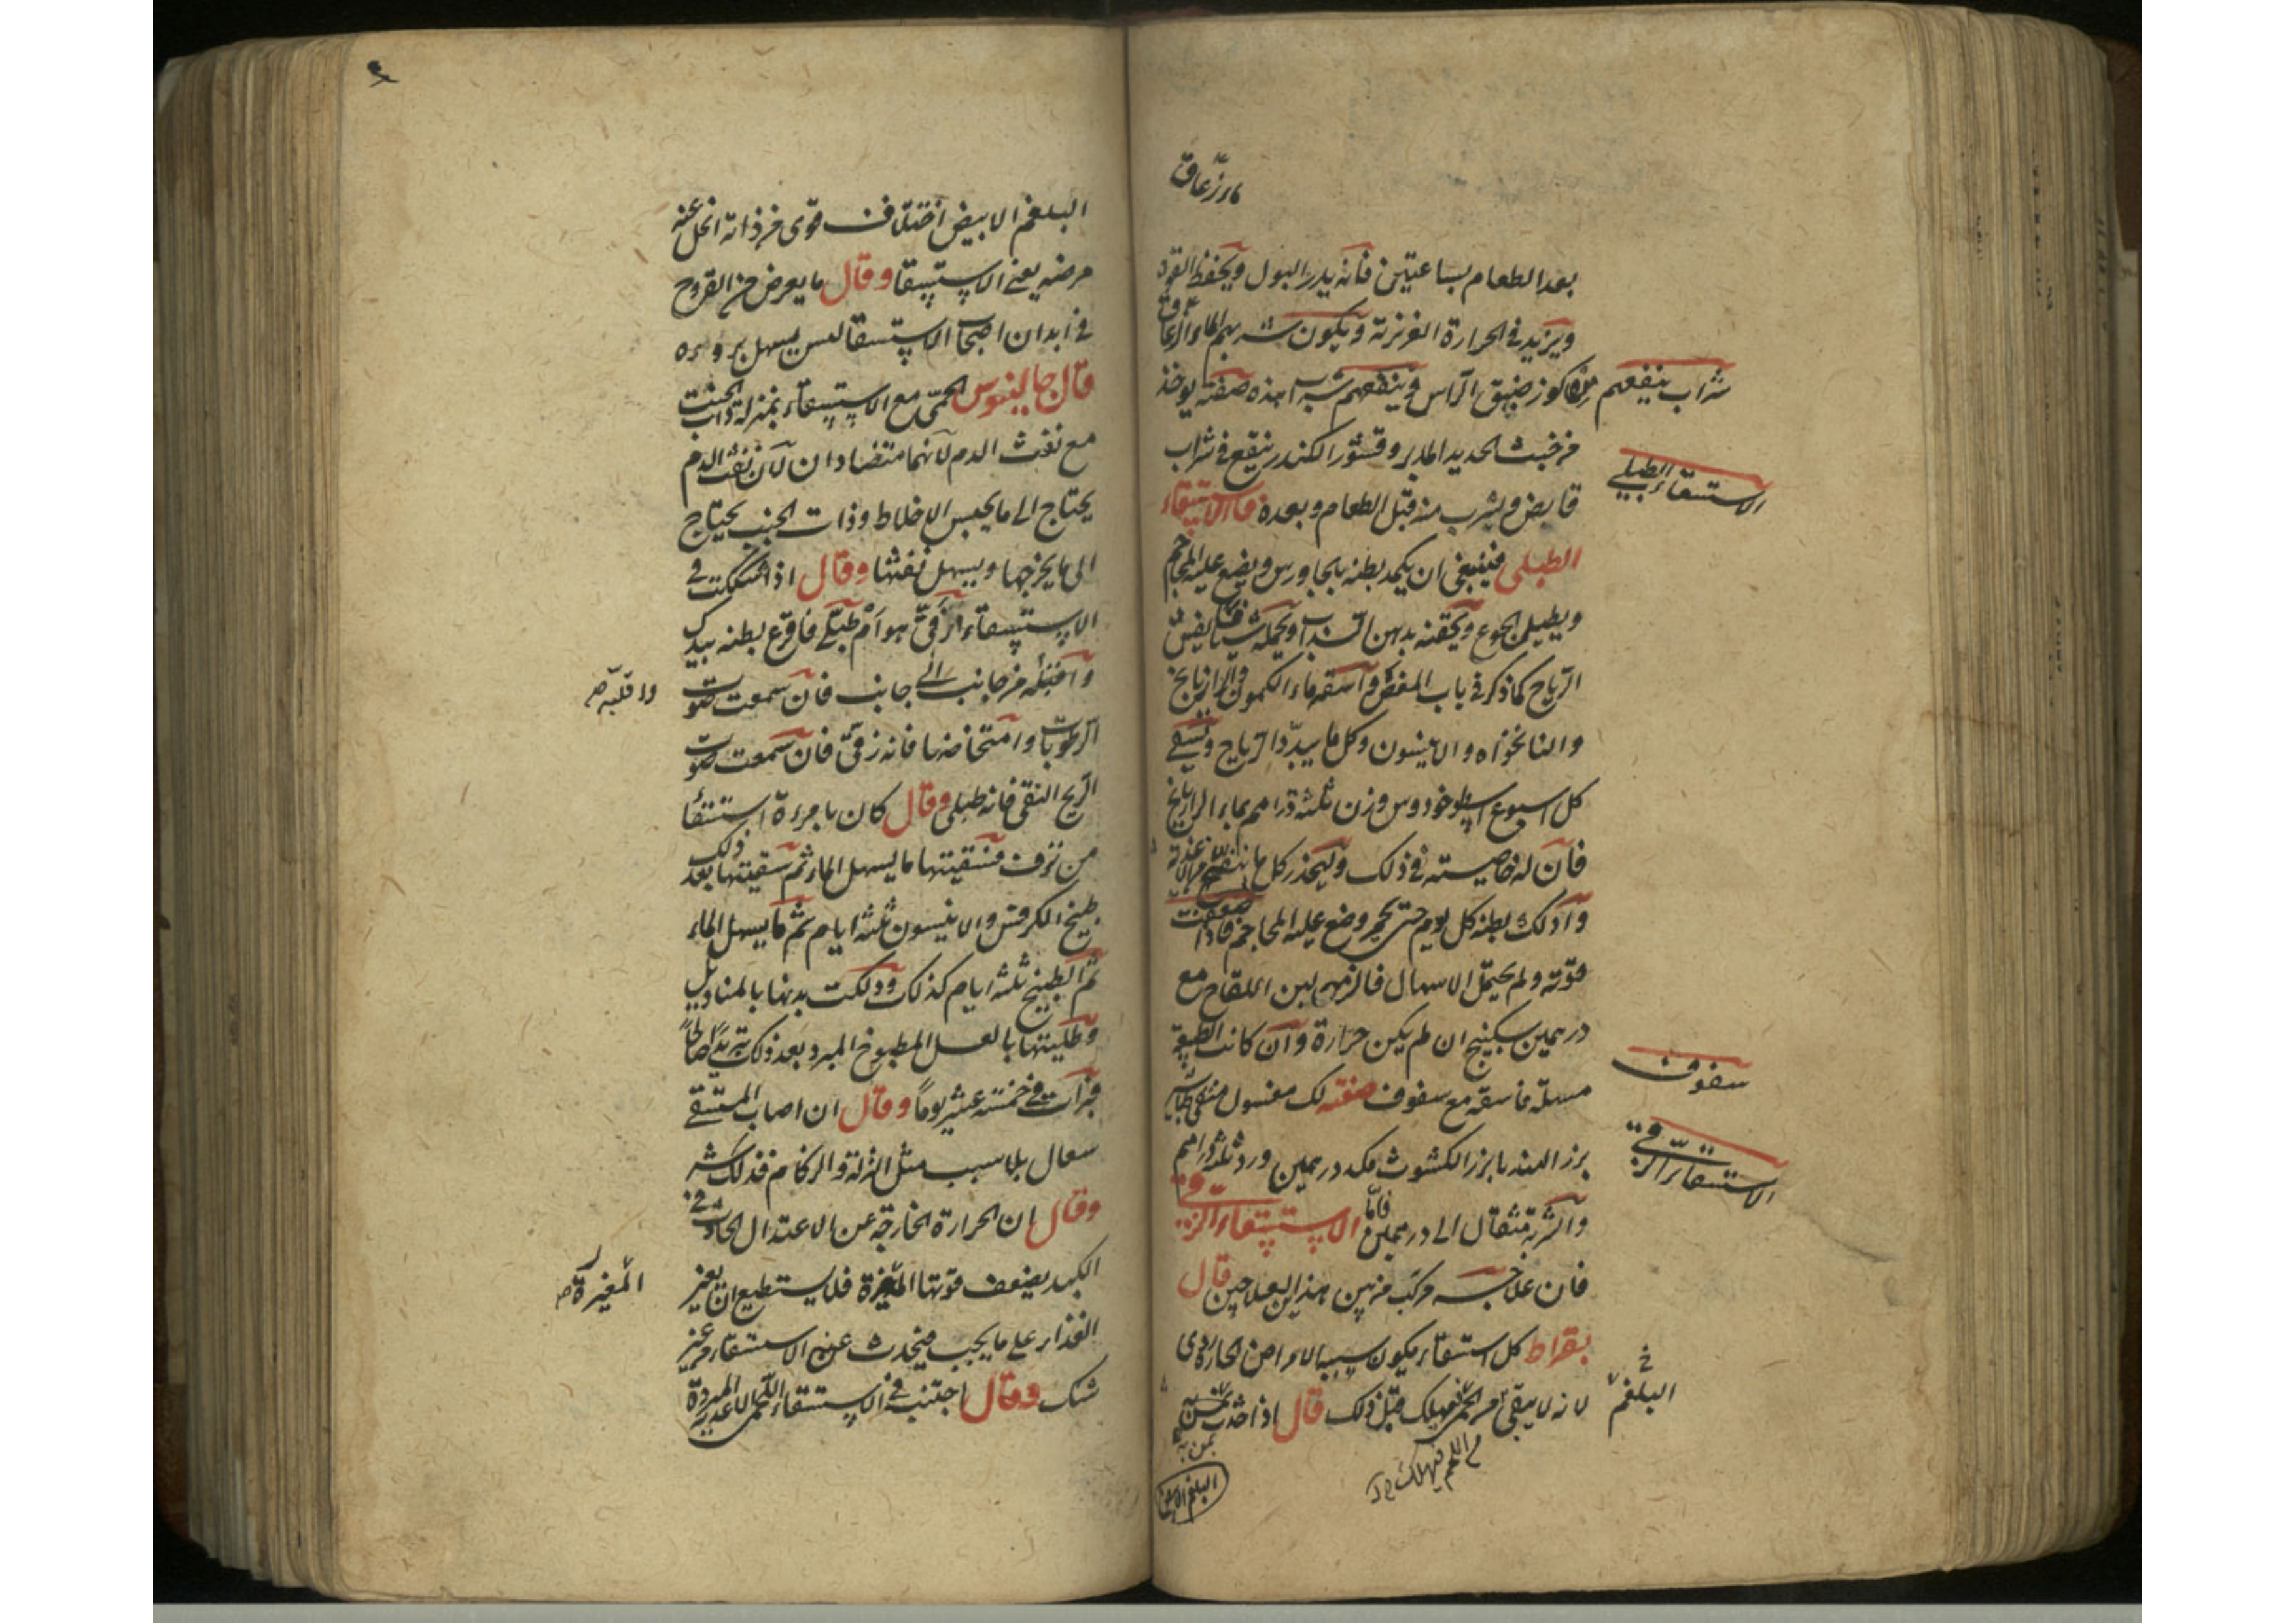 ماء زعاق
بعد الطعام بساعتين فانه يدر البول ويحفظ القوة
ويزيد في الحرارة الغريزية ويكون شربهم الماء الزعاق
من كوز ضيق الرأس وينفعهم شراب هذه صفته يوخذ
شراب ينفعهم
من خبث الحديد المدبر وقشور الكندر ينقع في شراب
الاستسقاء الطبلي
قابض ويشرب منه قبل الطعام وبعده فاما الاستسقاء
الطبلي فينبغي ان يكمد بطنه بالجاورس ويضع عليه المحاجم
ويطيل الجوع ويحقنه بدهن السداب ويحمله شيافا يفش
الرياح كما ذكر في باب المغص وآسقه ماء الكمون والرازيانج
والنانخواه والانيسون وكل ما يبدد الرياح ويسقي
كل اسبوع اسطوخودوس وزن ثلثة دراهم بماء الرازيانج
فان له خاصيته في ذلك وليحذر كل ما ينفخ من الاغذية
وآدلك بطنه كل يوم حتى يحمر وضع عليه المحاجم فاذا ضعفت
قوته ولم يحتمل الاسهال فالزمهم لبن اللقاح مع
درهمين سكبينج ان لم يكن حرارة وآن كانت الطبيعة
مسهلة فاسقه مع سفوف صفته لك مغسول منقى طباشير
سفوف
بزر الهندبا بزر الكشوث مكد درهمين ورد ثلثة دراهم
والشربة مثقال الى درهمين فاما الاستسقاء الزقي
الاستسقاء الزقي
فان علاجه مركب من بين هذين العلاجين قال
بقراط كل استسقاء يكون سببه الامراض الحارة ردي
لانه لا يبقي من الحمى فيهلك قبل ذلك قال اذا حدث بمن
البلغم
بمن به
البلغم الابيض
البلغم الابيض اختلاف قوي من ذاته انحل عنه
مرضه يعني الاستسقا وقال ما يعرض من القروح
في ابدان اصحاب الاستسقا ليس يسهل بروءه
قال جالينوس الحمى مع الاستسقاء بمنزلة ذات الجنب
مع نفث الدم لانهما متضادان لان نفث الدم
يحتاج الى ما يحبس الاخلاط وذات الجنب يحتاج
الى ما يخرجها ويسهل نفثها وقال اذا شككت في
الاستسقاء ازقي هو ام طبلي فاقرع بطنه بيدك
من جانب الى جانب فان سمعت صوت
واقلبه صح
الرطوبات وامتخاضها فانه زقي فان سمعت صوت
الريح النقي فانه طبلي وقال كان بامرءة استسقا
من نزف فسقيتها ما يسهل الماء ثم سقيتها بعد ذلك
طبيخ الكرفس والانيسون ثلثة ايام ثم ما يسهل الماء
ثم الطبيخ ثلثة ايام كذلك ودلكت بدنها بالمناديل
وطليتها بالعسل المطبوخ المبرد بعد ذلك تبريدا صالحا
فبرأت في خمسة عشر يوما وقال ان اصاب المستسقي
سعال بلا سبب مثل النزلة والزكام فذلك شر
وقال ان الحرارة الخارجة عن الاعتدال الحادث في
الكبد يضعف قوتها المغيرة فلا يستطيع ان يغير
المغيرة صح
الغذاء على ما يجب فيحدث عنه الاستسقاء من غير
شك وقال اجتنب في الاستسقاء اللحمي الاغذية المبردة